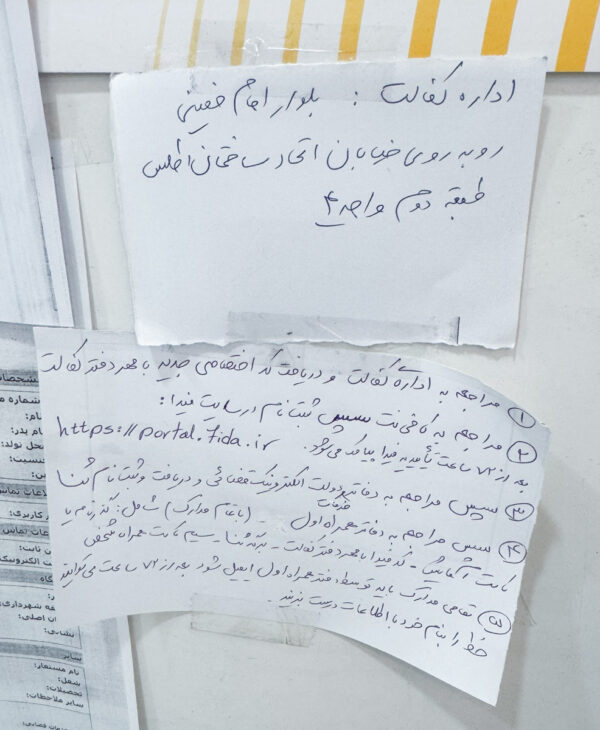 اداره کفالت : بلوار امام خمینی
روبه روی خیابان اتحاد ساختمان اطلس
طبقه دوم واحد ۴
① مراجعه به اداره کفالت و دریافت کد اختصاصی جدید با مهر دفتر کفالت
② مراجعه به کافی نت سپس ثبت نام در سایت فیدا :
بعد از ۷۲ ساعت تأیدیه فیدا پیامک می شود. https://portal.fida.ir
③ سپس مراجعه به دفاتر خدمات دولت الکترونیک قضائی و دریافت و ثبت نام ثنا
④ سپس مراجعه به دفاتر همراه اول (با تمام مدارک) شامل : گذرنامه یا
کارت آمایش - کد فیدا با مهر دفتر کفالت - برگه ثنا - سیم کارت همراه شخص
⑤ تمامی مدارک باید توسط دفتر همراه اول ایمیل شود بعد از ۷۲ ساعت می توانند
خط را بنام خود با اطلاعات درست بزنند.
شماره
نام:
نام پدر:
محل تولد:
جنسیت:
کاربری:
تلفن ثابت:
پست الکترونیک
منطقه شهرداری:
خیابان اصلی:
نشانی:
سایر
نام مستعار:
شغل:
تحصیلات:
سایر ملاحظات: